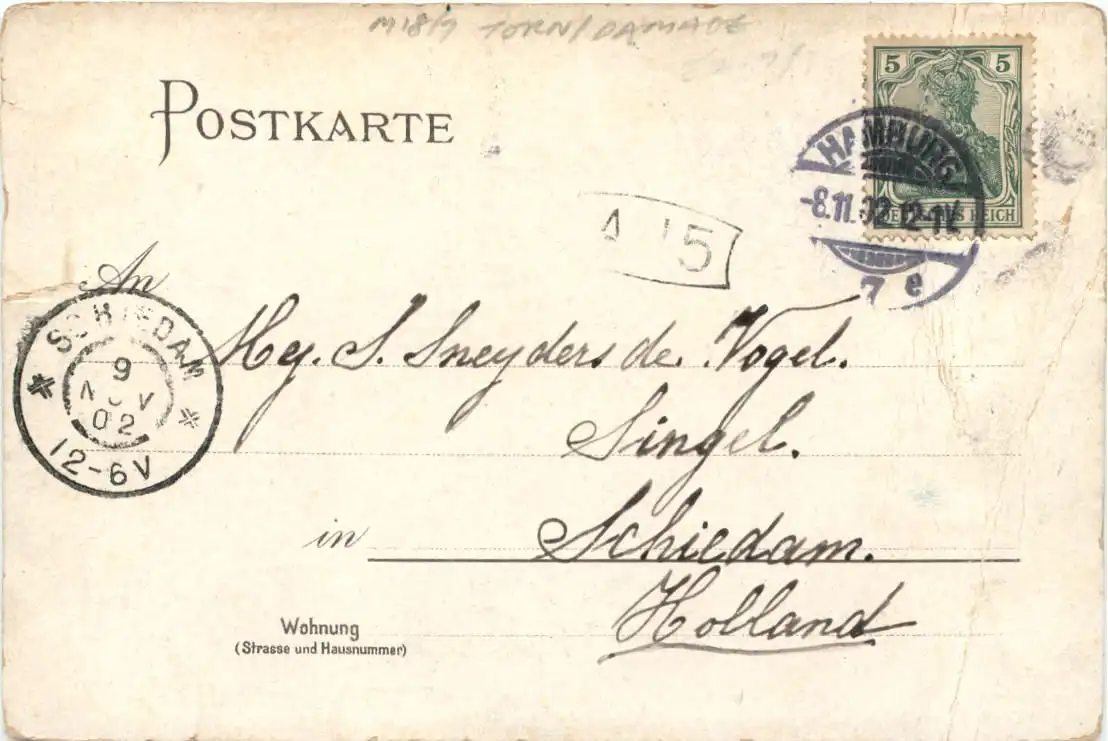 M18/9 TORN/DAMAGE
POSTKARTE
5 5
DEUTSCHES REICH
HAMBURG
-8.11.02 12-1V
7 e
5
An
SCHIEDAM
9
NOV
02
12-6V
Hg. S. Sneyders de Vogel.
Singel.
in Schiedam.
Holland
Wohnung
(Strasse und Hausnummer)